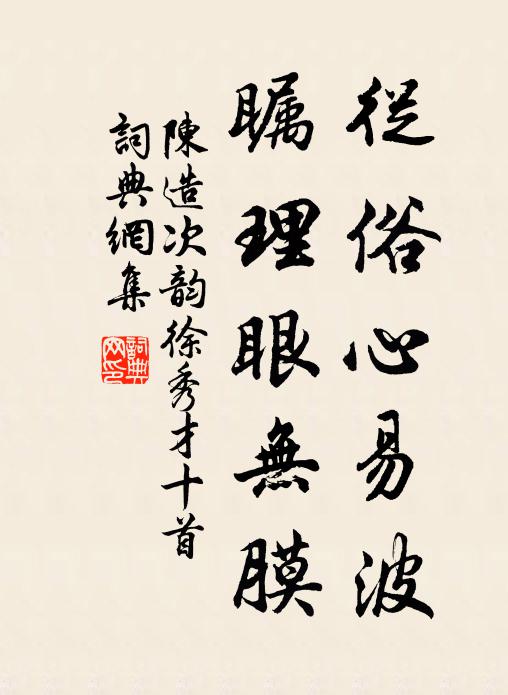 從俗心易波
瞩理眼無膜
陳造次韵徐秀才十首
詞典網集
詞典網印